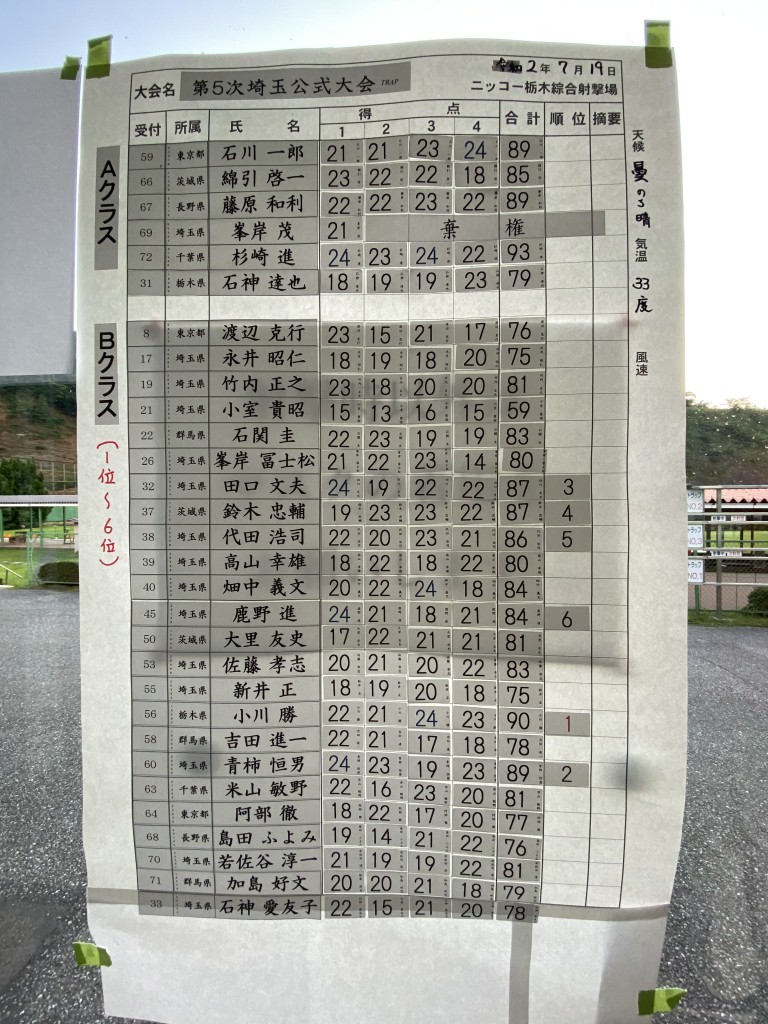 令和2年7月19日
大会名 第5次埼玉公式大会 TRAP ニッコー栃木綜合射撃場
受付 所属 氏名 得点 合計 順位 摘要
1 2 3 4
Aクラス
59 東京都 石川 一郎 21 21 23 24 89
66 茨城県 綿引 啓一 23 22 22 18 85
67 長野県 藤原 和利 22 22 23 22 89
69 埼玉県 峯岸 茂 21 棄権
72 千葉県 杉崎 進 24 23 24 22 93
31 栃木県 石神 達也 18 19 19 23 79
Bクラス
(1位~6位)
8 東京都 渡辺 克行 23 15 21 17 76
17 埼玉県 永井 昭仁 18 19 18 20 75
19 埼玉県 竹内 正之 23 18 20 20 81
21 埼玉県 小室 貴昭 15 13 16 15 59
22 群馬県 石関 圭 22 23 19 19 83
26 埼玉県 峯岸 冨士松 21 22 23 14 80
32 埼玉県 田口 文夫 24 19 22 22 87 3
37 茨城県 鈴木 忠輔 19 23 23 22 87 4
38 埼玉県 代田 浩司 22 20 23 21 86 5
39 埼玉県 高山 幸雄 18 22 18 22 80
40 埼玉県 畑中 義文 20 22 24 18 84
45 埼玉県 鹿野 進 24 21 18 21 84 6
50 茨城県 大里 友史 17 22 21 21 81
53 埼玉県 佐藤 孝志 20 21 20 22 83
55 埼玉県 新井 正 18 19 20 18 75
56 栃木県 小川 勝 22 21 24 23 90 1
58 群馬県 吉田 進一 22 21 17 18 78
60 埼玉県 青柿 恒男 24 23 19 23 89 2
63 千葉県 米山 敏野 22 16 23 20 81
64 東京都 阿部 徹 18 22 17 20 77
68 長野県 島田 ふよみ 19 14 21 22 76
70 埼玉県 若佐谷 淳一 21 19 19 22 81
71 群馬県 加島 好文 20 20 21 18 79
33 埼玉県 石神 愛友子 22 15 21 20 78
天候 曇のち晴 気温 33度 風速
トラップ
NO.2
トラップ
NO.3
トラップ
NO.1